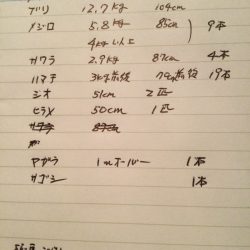 ブリ 12.7kg 104cm
メジロ 5.8kg 85cm 9本
4kg以上
サワラ 2.9kg 87cm 4本
ハマチ 3kg前後 70cm前後 19本
シオ 51cm 2匹
ヒラメ 50cm 1匹
サワラ 87cm
ヤガラ 1mオーバー 1本
サゴシ 1本